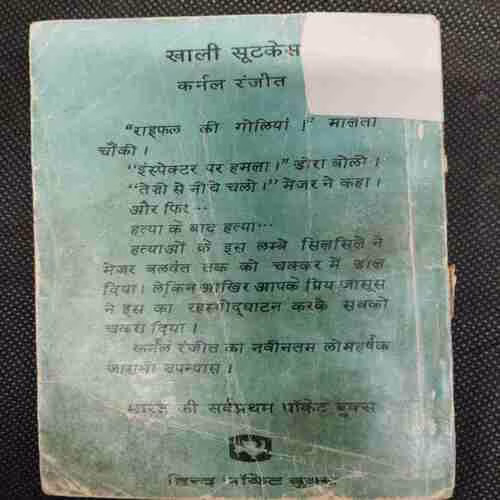 खाली सूटकेस
कर्नल रंजीत
"राइफल की गोलियां !" मालती
चौंकी ।
"इंस्पेक्टर पर हमला ।" डोरा बोली ।
"तेजी से नीचे चलो ।" मेजर ने कहा ।
और फिर ··
हत्या के बाद हत्या···
हत्याओं के इस लम्बे सिलसिले ने
मेजर बलवंत तक को चक्कर में डाल
दिया । लेकिन आखिर आपके प्रिय जासूस
ने इस का रहस्योद्घाटन करके सबको
चकरा दिया ।
कर्नल रंजीत का नवीनतम लोमहर्षक
जासूसी उपन्यास ।
भारत की सर्वप्रथम पॉकेट बुक्स
हिन्द पॉकेट बुक्स